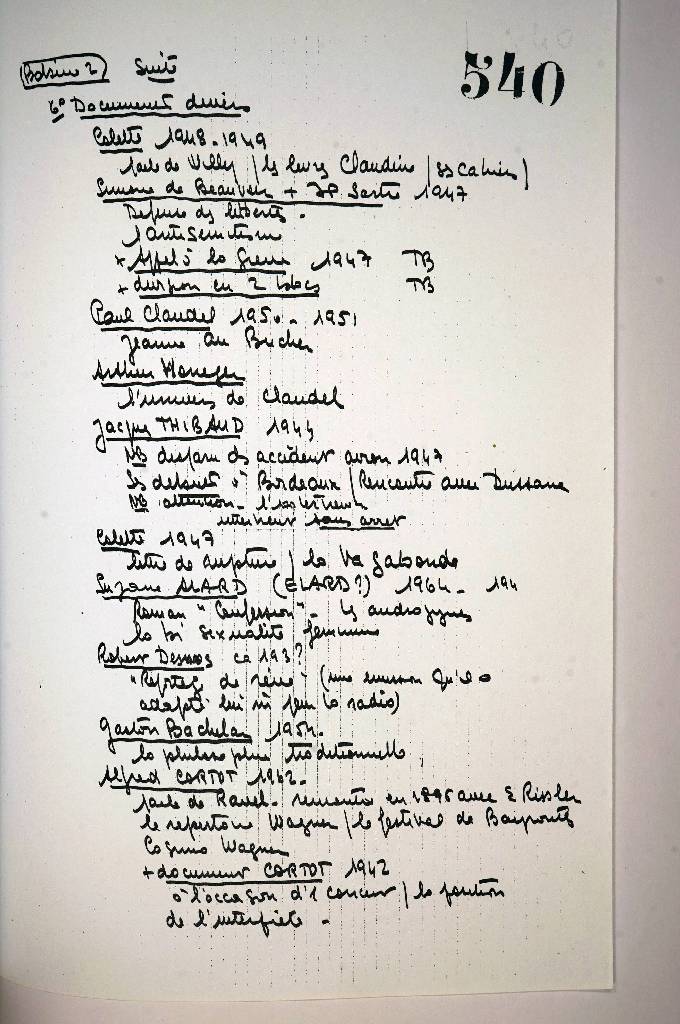 Bobine 2 Suite
540
6° Documents divers
Colette 1948-1949
parle de Willy / les livres Claudine / ses cahiers /
Simone de Beauvoir + JP Sartre 1947
Defense des libertés.
l'antisemitisme
+ Appel à la Guerre 1947 TB
+ division en 2 blocs TB
Paul Claudel 1950-1951
Jeanne au Bucher
Arthur Honegger
l'univers de Claudel
Jacques THIBAUD 1944
NB disparu ds accident avion 1947
Ses debuts à Bordeaux / Rencontre avec Dussane
NB attention - l'
interviewé sans arret
Colette 1947
lettre de rupture / la Vagabonde
Suzane ALARD (ELARD?) 1964 - 194
Roman "Confession" - les androgynes
la bi sexualité feminine
Robert Desnos ca 193?
" de rêve" (une emission qu'il a
adapté lui m pour la radio)
Gaston Bachelar 1954.
la philosophie traditionnelle
Alfred CORTOT 1962.
parle de Ravel - rencontre en 1895 avec E Rissler
le repertoire Wagner / le festival de Bayreuth
Cosima Wagner
+ document CORTOT 1942
à l'occasion d'1 concour / la fonction
de l'interprète -